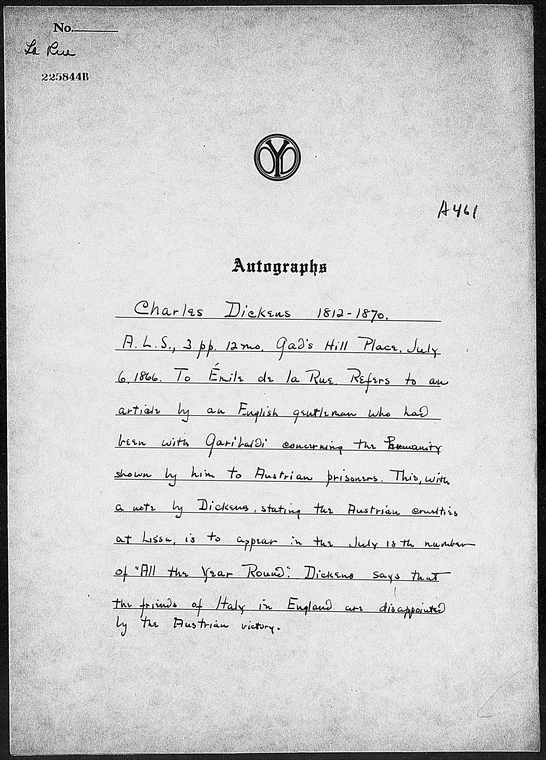 No.
La Rue
225844B
A461
Autographs
Charles Dickens 1812-1870.
A.L.S., 3 pp. 12mo. Gad's Hill Place. July
6, 1866. To Émile de la Rue. Refers to an
article by an English gentleman who had
been with Garibaldi concerning the humanity
shown by him to Austrian prisoners. This, with
a note by Dickens, stating the Austrian cruelties
at Lissa, is to appear in the July 15th number
of "All the Year Round". Dickens says that
the friends of Italy in England are disappointed
by the Austrian victory.